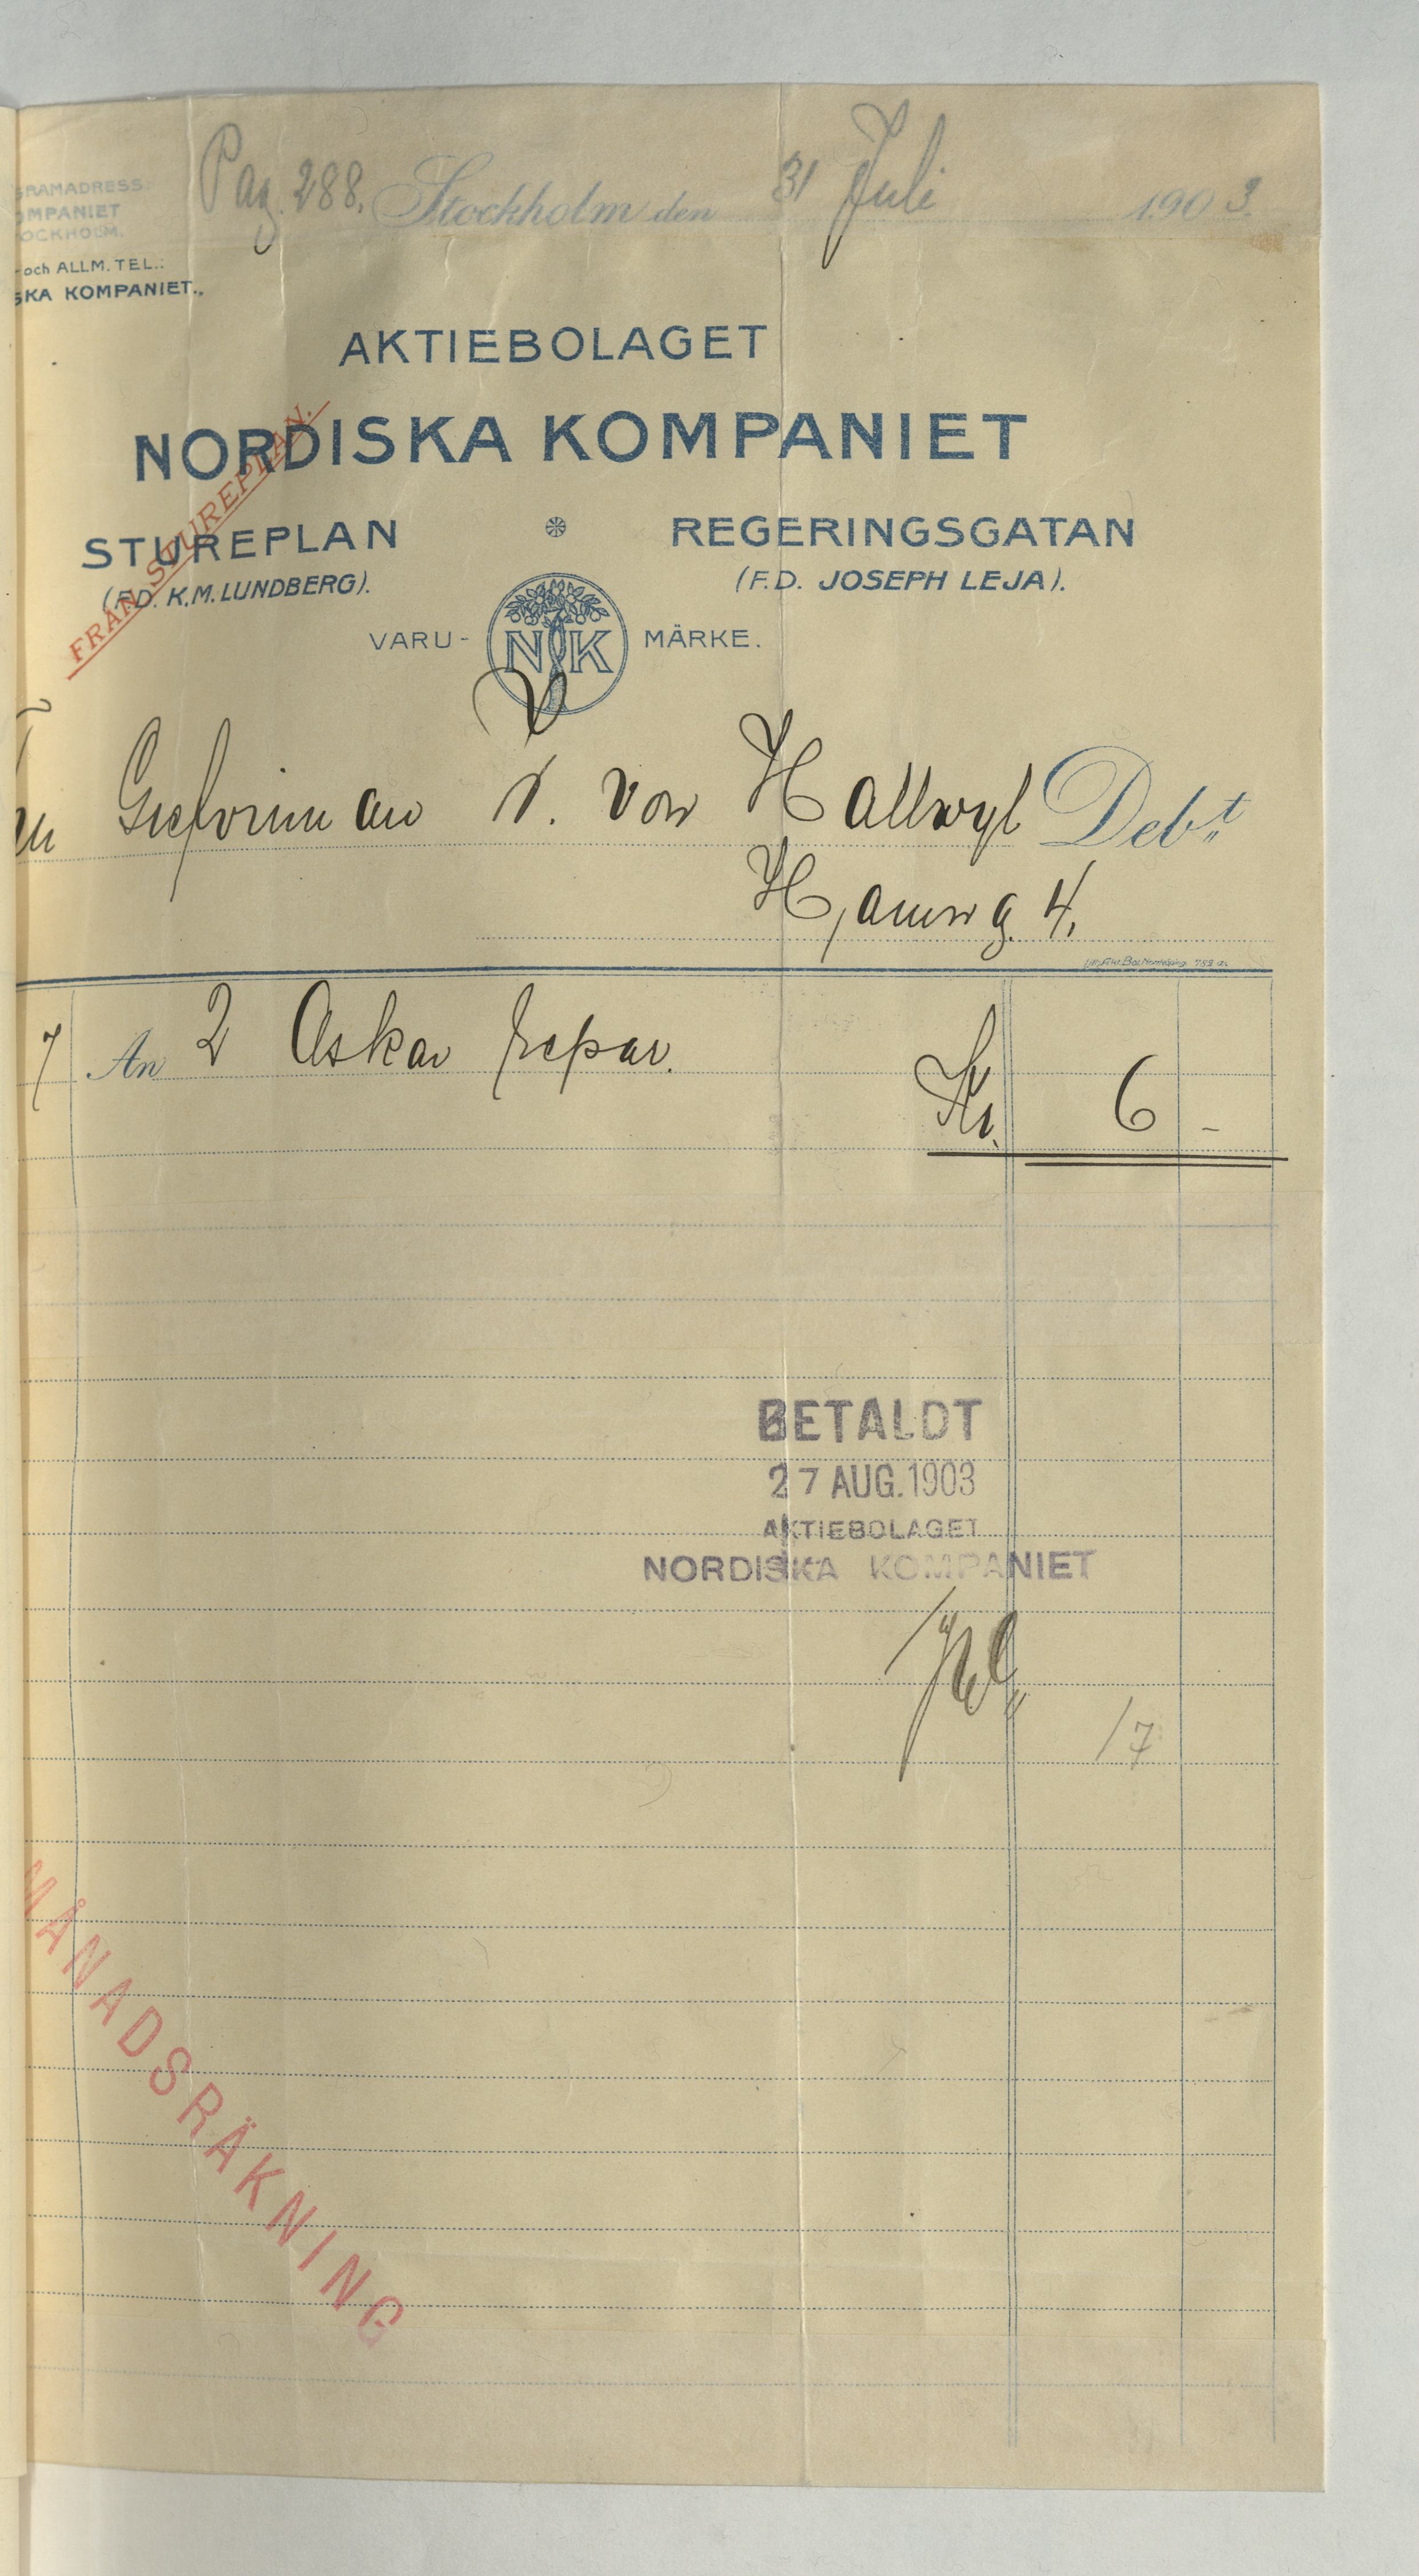 Pag. 288. Stockholm den 31 Juli 1903.
GRAMADRESS:
OMPANIET
OCKHOLM.
och ALLM. TEL.:
SKA KOMPANIET.,
AKTIEBOLAGET
NORDISKA KOMPANIET
STUREPLAN REGERINGSGATAN
(F.D. K.M. LUNDBERG). (F.D. JOSEPH LEJA).
FRÅN STUREPLAN.
VARU- NK MÄRKE.
Grefvinnan V. von Hallwyl Deb:t
Hamng. 4.
7 An 2 Askar repar.
Kr. 6 -
BETALDT
27 AUG. 1903
AKTIEBOLAGET
NORDISKA KOMPANIET
/7
MÅNADSRÄKNING